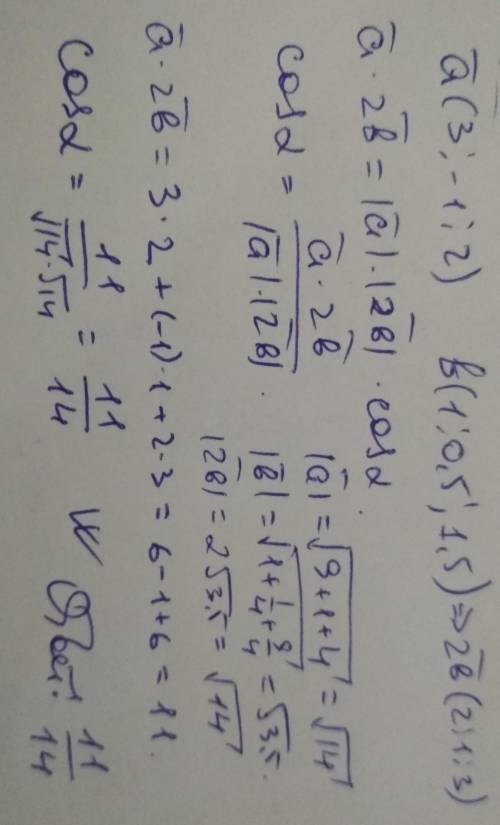 ā(3; -1; 2) b(1; 0,5; 1,5) => 2b̄(2; 1; 3)
ā · 2b̄ = |ā| · |2b̄| · cosα.
cosα = (ā · 2b̄)/(|ā| · |2b̄|).
|ā| = √(9+1+4) = √14
|b̄| = √(1+1/4+9/4) = √3,5.
|2b̄| = 2√3,5 = √14
ā · 2b̄ = 3·2 + (-1)·1 + 2·3 = 6-1+6 = 11.
cosα = 11/(√14·√14) = 11/14
Ответ: 11/14